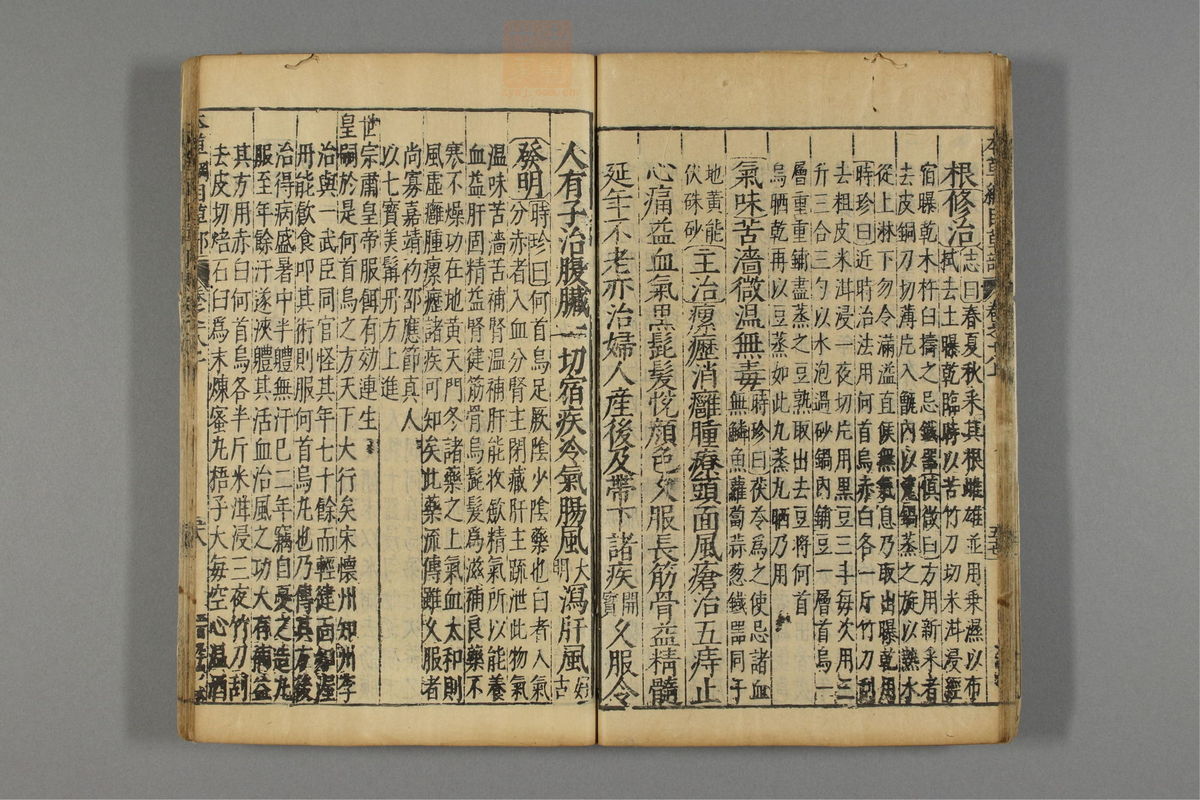 根修治志曰春夏秋采其根雌雄並用乗濕以布
拭去土曝乾臨時以苦竹刀切米泔浸經
宿曝乾木杵臼擣之忌鐵器慎微曰方用新采者
去皮銅刀切薄片入甑內以瓷鍋蒸之旋以熱水
從上淋下勿令滿溢直候無氣息乃取出曝乾用
時珍曰近時治法用何首烏赤白各一斤竹刀刮
去粗皮米泔浸一夜切片用黒豆三斗每次用三
升三合三勺以水泡過砂鍋內鋪豆一層首烏一
層重重鋪盡蒸之豆熟取出去豆將何首
烏晒乾再以豆蒸如此九蒸九晒乃用
氣味苦濇微温無毒時珍曰茯苓爲之使忌諸血
無鱗魚蘿蔔蒜葱鐵器同于
地黃能
伏硃砂主治瘰癧消癰腫療頭面風瘡治五痔止
心痛益血氣黒髭髮悅顔色久服長筋骨益精髓
延年不老亦治婦人産後及帶下諸疾開
寳久服令
人有子治腹臟一切宿疾冷氣腸風大
明瀉肝風好
古
發明時珍曰何首烏足厥陰少陰藥也白者入氣
分赤者入血分腎主閉藏肝主疏泄此物氣
温味苦濇苦補腎温補肝能收斂精氣所以能養
血益肝固精益腎健筋骨烏髭髮爲滋補良藥不
寒不燥功在地黃天門冬諸藥之上氣血太和則
風虛癰腫瘰癧諸疾可知矣此藥流傳雖久服者
尚寡嘉靖初邵應節真人
以七寳美髯丹方上進
世宗肅皇帝服餌有效連生
皇嗣於是何首烏之方天下大行矣宋懷州知州李
治與一武臣同官怪其年七十餘而輕健面如渥
丹能飲食叩其術則服何首烏丸也乃傳其方後
治得病盛暑中半體無汗已二年竊自憂之造丸
服至年餘汗遂浹體其活血治風之功大有補益
其方用赤白何首烏各半斤米泔浸三夜竹刀刮
去皮切焙石臼爲末煉蜜丸梧子大每空心温酒